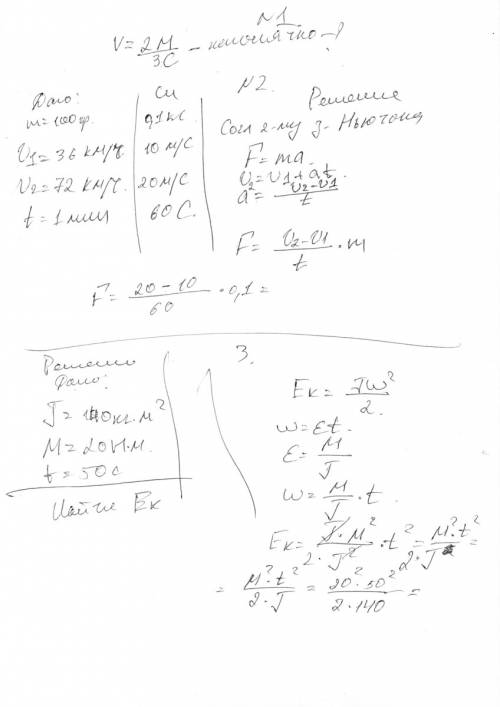 N1
V = 2M/3C - непонятно - ?
N2.
Дано:
m = 100гр.
V1 = 36 км/ч.
V2 = 72 км/ч.
t = 1 мин
СИ
0,1 кг.
10 м/с
20 м/с
60 С.
Решение
Согл 2-му з- Ньютона
F = ma.
V2 = V1 + at.
a = V2-V1/t
F = V2-V1/t · m
F = 20-10/60 · 0,1 =
3.
Решение
Дано:
M = 20 Н·м.
t = 50 с
Найти Eк
Eк = Jω²/2.
ω = εt.
ε = M/J
ω = M/J · t.
Eк = J·M²/2·J² · t² = M²·t²/2·J =
= M²·t²/2·J = 20²·50²/2·140 =